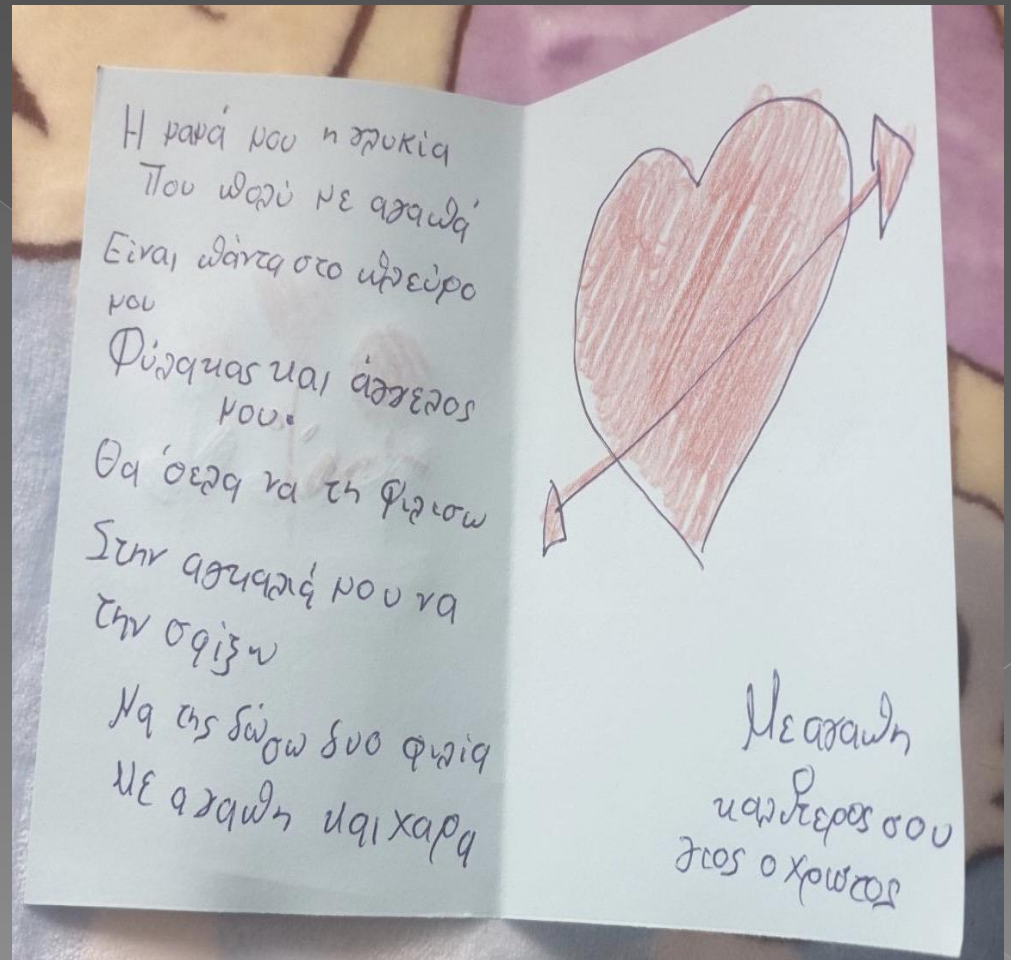 Η μαμά μου η γλυκία
Που πολύ με αγαπά
Είναι πάντα στο πλεύρο
μου
Φύλακας και άγγελος
μου.
Θα 'θελα να τη φιλισω
Στην αγκαλιά μου να
την σφίξω
Να της δώσω δυο φιλία
με αγαπη και χαρα
Με αγαπη
ο καλυτερος σου
γιος ο χρωστος